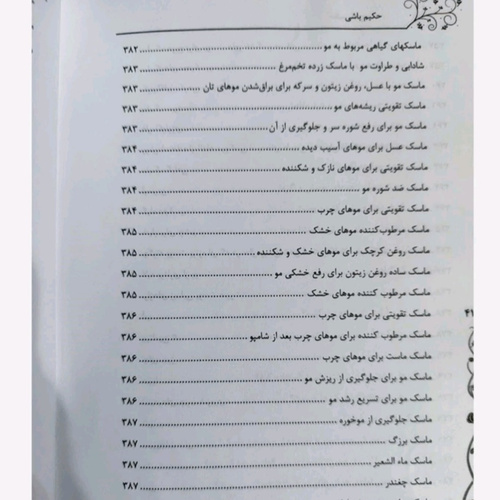 حکیم باشی
ماسکهای گیاهی مربوط به مو ........ ۳۸۲
شادابی و طراوت مو با ماسک زرده تخم‌مرغ ........ ۳۸۳
ماسک مو با عسل، روغن زیتون و سرکه برای براق‌شدن موهای تان ........ ۳۸۳
ماسک تقویتی ریشه‌های مو ........ ۳۸۳
ماسک مو برای رفع شوره سر و جلوگیری از آن ........ ۳۸۳
ماسک عسل برای موهای آسیب دیده ........ ۳۸۴
ماسک تقویتی برای موهای نازک و شکننده ........ ۳۸۴
ماسک ضد شوره مو ........ ۳۸۴
ماسک تقویتی برای موهای چرب ........ ۳۸۴
ماسک مرطوب‌کننده موهای خشک ........ ۳۸۵
ماسک روغن کرچک برای موهای خشک و شکننده ........ ۳۸۵
ماسک ساده روغن زیتون برای رفع خشکی مو ........ ۳۸۵
ماسک مرطوب کننده موهای خشک ........ ۳۸۵
ماسک تقویتی برای موهای چرب ........ ۳۸۶
ماسک مرطوب کننده برای موهای چرب بعد از شامپو ........ ۳۸۶
ماسک ماست برای موهای چرب ........ ۳۸۶
ماسک مو برای جلوگیری از ریزش مو ........ ۳۸۶
ماسک مو برای تسریع رشد مو ........ ۳۸۶
ماسک جلوگیری از موخوره ........ ۳۸۷
ماسک برزگ ........ ۳۸۷
ماسک ماه الشعیر ........ ۳۸۷
ماسک چغندر ........ ۳۸۷